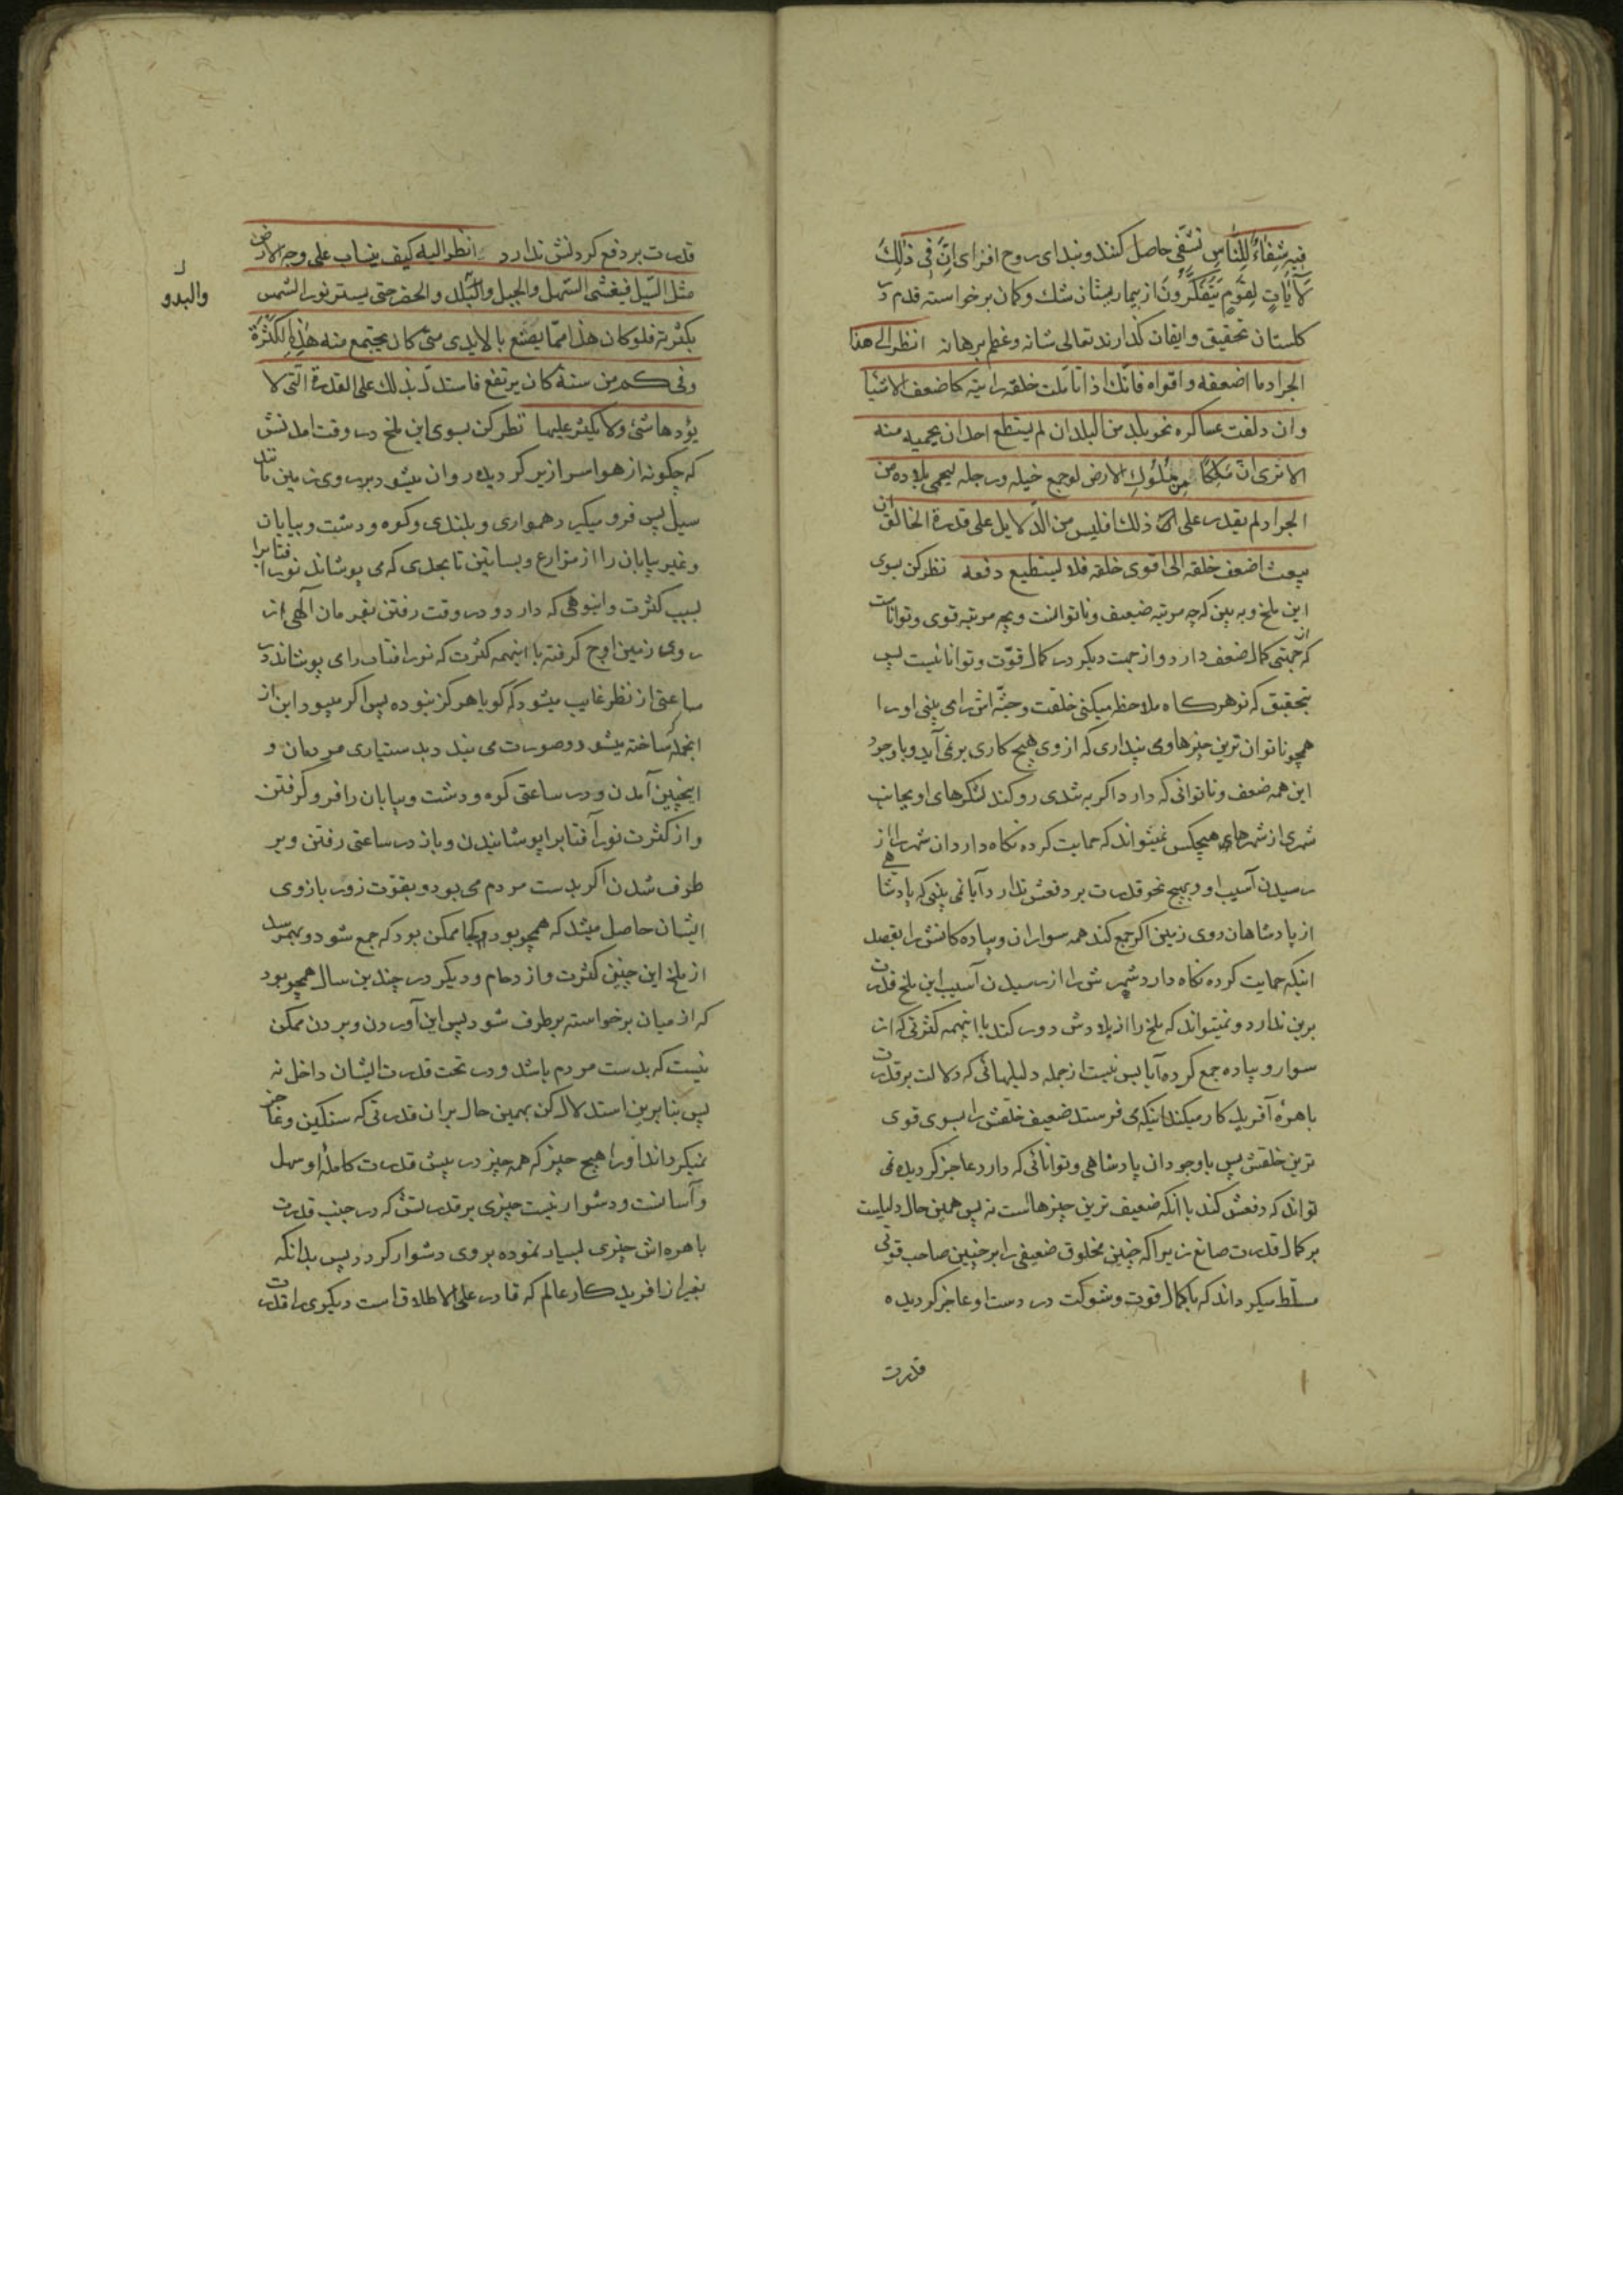 فِیهِ شِفَاءٌ لِلنَّاسِ تشفّی حاصل کنند و بندای روح افزای اِنَّ فِی ذٰلِکَ
لَآیَاتٍ لِقَوْمٍ یَتَفَکَّرُونَ از بیمارستان شک و کمان برخواسته قدم در
کلستان تحقیق و ایقان کذارند تعالی شانه و عظم برهانه انظر الی هذا
الجراد ما اضعفه و اقواه فانّک اذا تاملت خلقه رایته کاضعف الاشیا
وان دلفت عساکره نحو بلد من البلدان لم یستطع احد ان یحمیه منه
الا تری انّ مَلِکًا مِن مُلُوکِ الارض لو جمع خیله و رجله لیحمی بلاده من
الجراد لم یقدر علی ذلک افلیس من الدّلایل علی قدرة الخالق ان
یبعث اضعف خلقه الی اقوی خلقه فلا یستطیع دفعه نظر کن بسوی
این ملخ و به بین که چه مرتبه ضعیف و ناتوانست و بچه مرتبه قوی و تواناست
که از جهتی کمال ضعف دارد و از جهت دیکر در کمال قوّت و توانائیست پس
بتحقیق که تو هر کاه ملاحظه میکنی خلقت و جثّه اش را می بینی او را
همچو ناتوان ترین چیزها و می پنداری که از وی هیچ کاری بر نمی آید و با وجود
این همه ضعف و ناتوانی که دارد اکر به تندی رو کند لشکرهای او بجانب
شهری از شهرهای هیچکس نمیتواند که حمایت کرده نکاه دارد ان شهر را از
رسیدن آسیب او و بهیچ نحو قدرت بر دفعش ندارد آیا نمی بینی که پادشاهی
از پادشاهان روی زمین اکر جمع کند همه سواران و پیاده کانش را بقصد
اینکه حمایت کرده نکاه دارد شهرش را از رسیدن آسیب این ملخ قدرت
برین ندارد و نمیتواند که ملخ را از بلادش دور کند با اینهمه کثرتی که از
سوار و پیاده جمع کرده آیا بس نیست از جمله دلیلهائی که دلالت بر قدرت
باهرهٔ آفریدکار میکند اینکه می فرستد ضعیف خلقش را بسوی قوی
ترین خلقش پس با وجود ان پادشاهی و توانائی که دارد عاجز کردیده نمی
تواند که دفعش کند با انکه ضعیف ترین چیزهاست نه پس همین حال دلیلیست
بر کمال قدرت صانع زیرا که چنین مخلوق ضعیفی را بر چنین صاحب قوتی
مسلّط میکرداند که با کمال قوت و شوکت در دست او عاجز کردیده
قدرت
قدرت بر دفع کردنش ندارد انظر الیه کیف ینساب علی وجه الارض
مثل السّیل فیغشی السّهل والجبل والبلد والحضر حتی یستر نور الشمس
والبدو
بکثرته فلو کان هذا ممّا یصنع بالایدی متی کان یجتمع منه هٰذِهِ الکَثْرَةُ
وفی کم من سنة کان یرتفع فاستدلّ بذلک علی القدرة الّتی لا
یؤدها شئ ولا یکثر علیها نظر کن بسوی این ملخ در وقت امدنش
که چکونه از هوا سرازیر کردیده روان میشود بر روی زمین مانند
سیل پس فرو میکیرد همواری و بلندی و کوه و دشت و بیابان
و غیر بیابان را از مزارع و بساتین تا بحدی که می پوشاند نور افتابرا
بسبب کثرت و انبوهی که دارد و در وقت رفتن بفرمان آلهی از
روی زمین اوج کرفته با اینهمه کثرت که نور افتاب را می پوشاند در
ساعتی از نظر غایب میشود که کویا هرکز نبوده پس اکر میبود این از
انجمله ساخته میشود و صورت می بندد بدستیاری مردمان و
اینچنین آمدن و در ساعتی کوه و دشت و بیابان را فرو کرفتن
و از کثرت نور آفتابرا پوشانیدن و باز در ساعتی رفتن و بر
طرف شدن اکر بدست مردم می بود و بقوّت زور بازوی
ایشان حاصل میشد که همچو بود و کجا ممکن بود که جمع شود و بهمرسد
از ملخ این چنین کثرت و ازدحام و دیکر در چندین سال همچو بود
که از میان برخواسته برطرف شود پس این آوردن و بردن ممکن
نیست که بدست مردم باشد و در تحت قدرت ایشان داخل نه
پس بنابرین استدلال کن بهمین حال بران قدرتی که سنکین و عاجز
نمیکرداند او را هیچ چیز که همه چیز در پیش قدرت کاملهٔ او سهل
و آسانست و دشوار نیست چیزی بر قدرتش که در جنب قدرت
باهره اش چیزی بسیار نموده بر وی دشوار کردد پس بدانکه
بغیر از افریدکار عالم که قادر علی الاطلاق است دیکری را قدرت